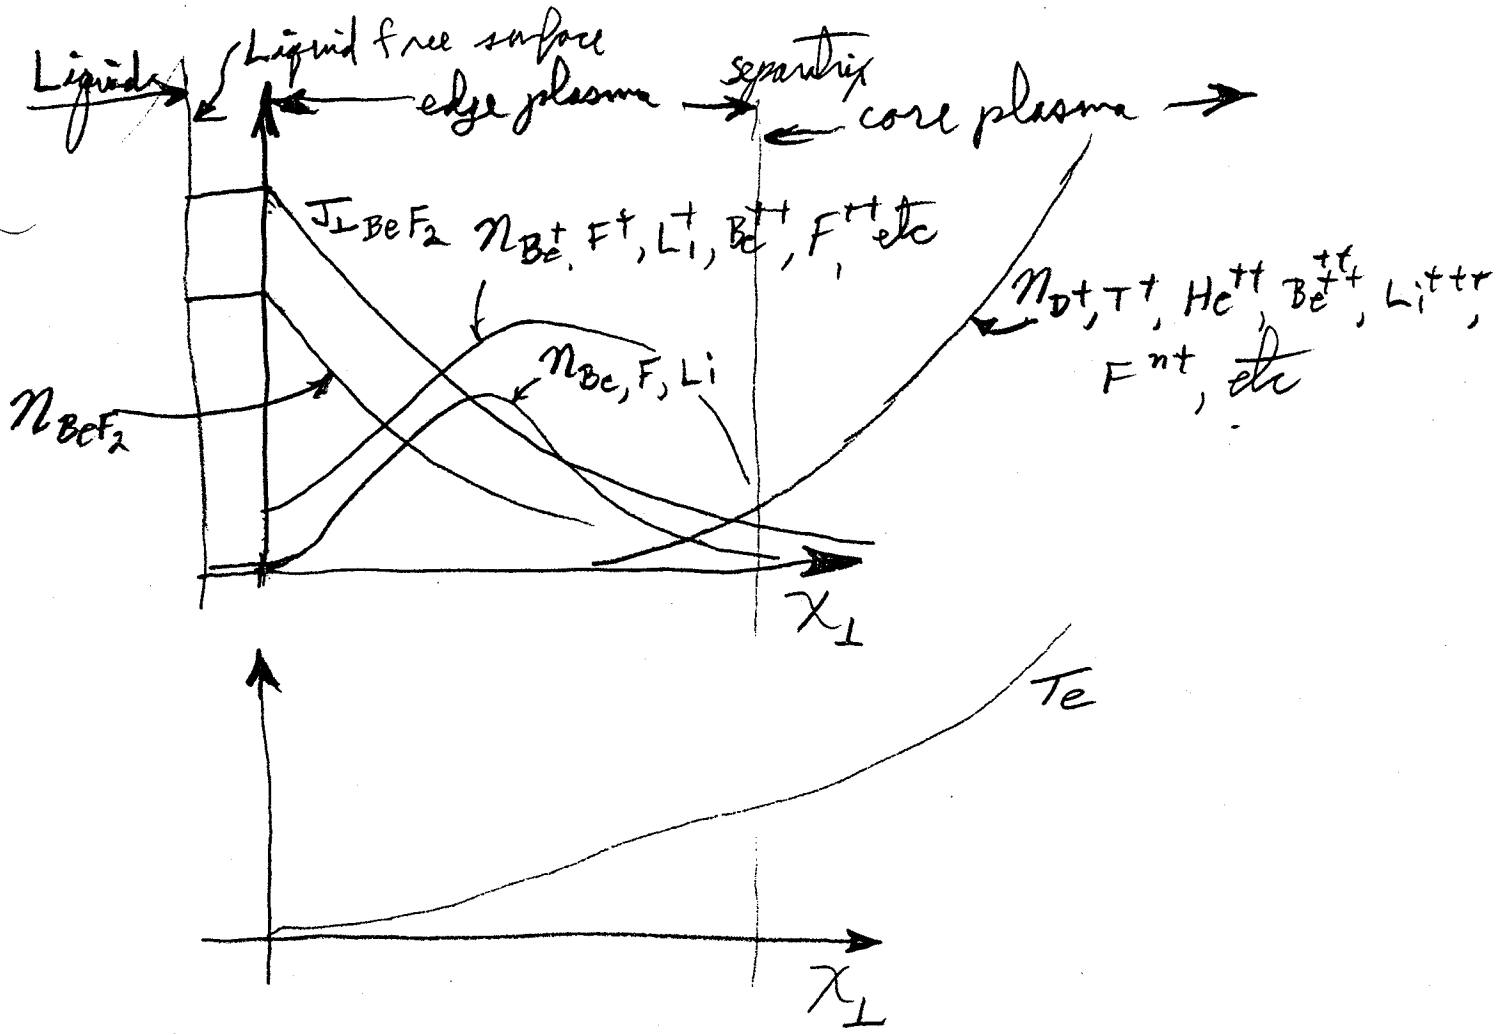 Liquid free surface
Liquids
edge plasma
separtrix
core plasma
J⊥BeF₂
n Be⁺, F⁺, Li⁺, Be⁺⁺, F⁺⁺, etc
n D⁺, T⁺, He⁺⁺, Be⁺⁺⁺⁺, Li⁺⁺⁺,
Fⁿ⁺, etc
n Be, F, Li
n BeF₂
X⊥
Te
X⊥